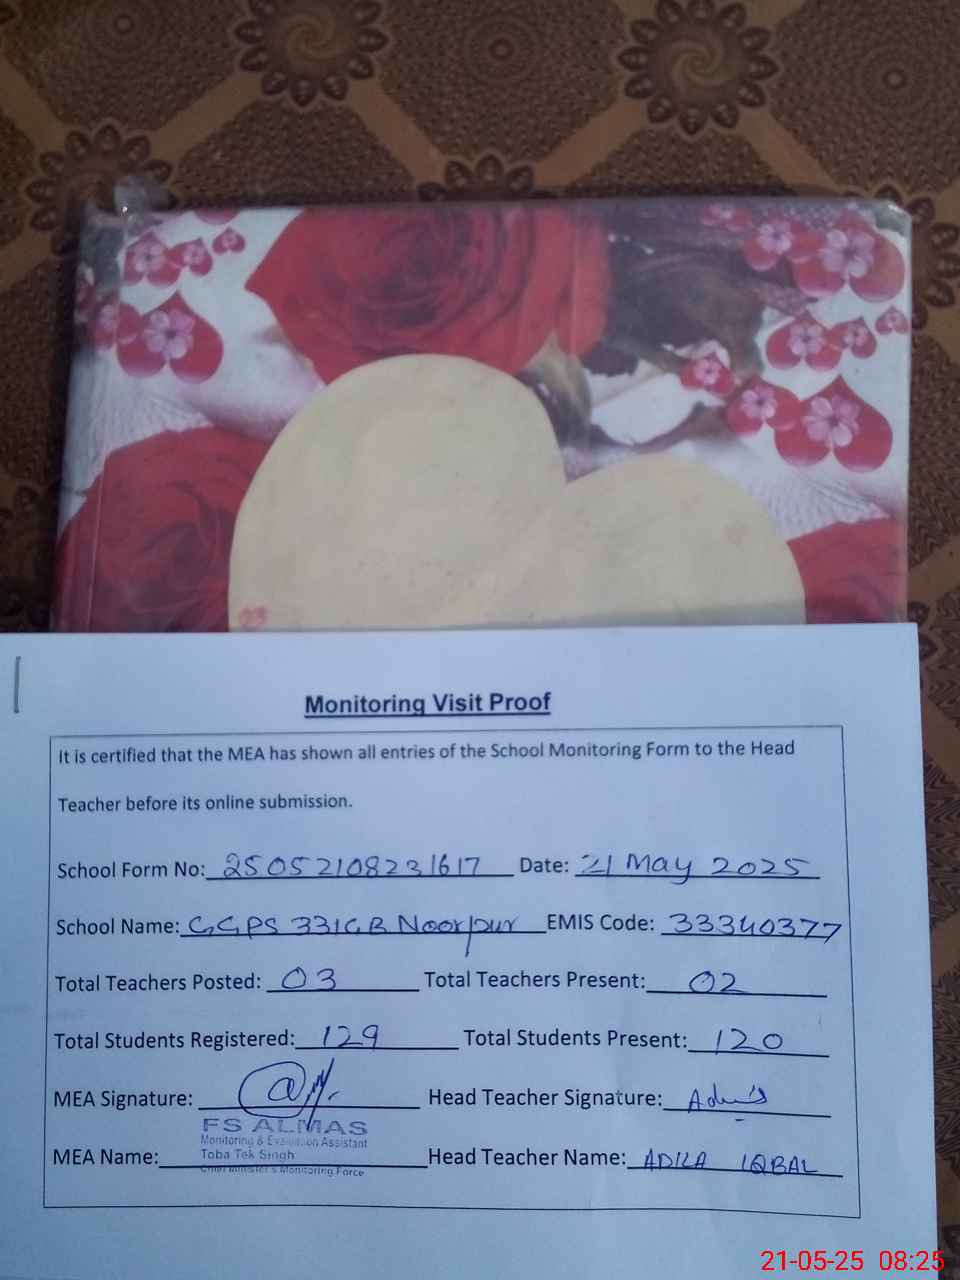 Monitoring Visit Proof
It is certified that the MEA has shown all entries of the School Monitoring Form to the Head
Teacher before its online submission.
School Form No: 25052108231617 Date: 21 May 2025
School Name: GGPS 331GB Noorpur EMIS Code: 33340377
Total Teachers Posted: 03 Total Teachers Present: 02
Total Students Registered: 129 Total Students Present: 120
MEA Signature: Head Teacher Signature:
FS ALMAS
Monitoring & Evaluation Assistant
Toba Tek Singh
MEA Name: Head Teacher Name: ADILA IQBAL
Chief Minister's Monitoring Force
21-05-25 08:25